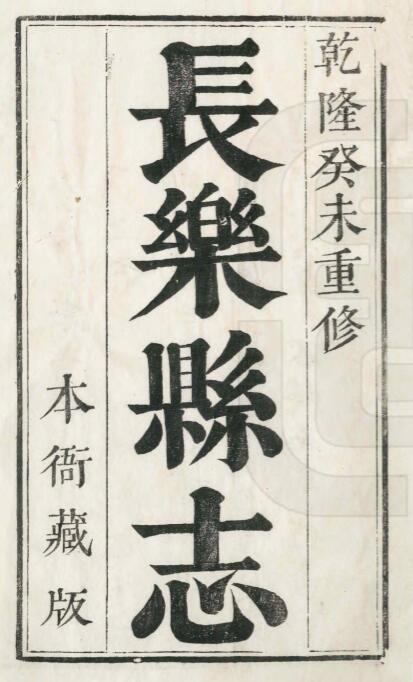 乾隆癸未重修
長樂縣志
本衙藏版